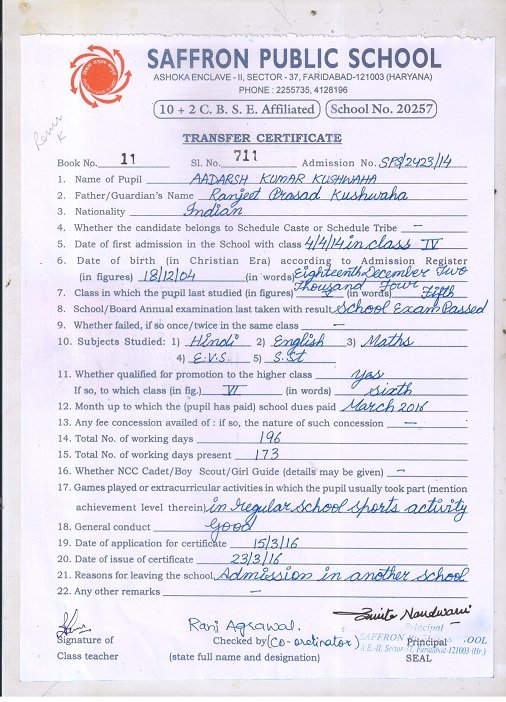 SAFFRON PUBLIC SCHOOL
ASHOKA ENCLAVE - II, SECTOR - 37, FARIDABAD-121003 (HARYANA)
PHONE : 2255735, 4128196
10 + 2 C. B. S. E. Affiliated School No. 20257
TRANSFER CERTIFICATE
Book No. 11 Sl. No. 711 Admission No. SPS/2423/14
1. Name of Pupil AADARSH KUMAR KUSHWAHA
2. Father/Guardian's Name Ranjeet Prasad Kushwaha
3. Nationality Indian
4. Whether the candidate belongs to Schedule Caste or Schedule Tribe —
5. Date of first admission in the School with class 4/4/14 in class IV
6. Date of birth (in Christian Era) according to Admission Register
(in figures) 18/12/04 (in words) Eighteenth December Two
Thousand Four
7. Class in which the pupil last studied (in figures) V (in words) Fifth
8. School/Board Annual examination last taken with result School Exam Passed
9. Whether failed, if so once/twice in the same class —
10. Subjects Studied: 1) Hindi 2) English 3) Maths
4) E.V.S. 5) S.St
11. Whether qualified for promotion to the higher class yes
If so, to which class (in fig.) VI (in words) sixth
12. Month up to which the (pupil has paid) school dues paid March 2016
13. Any fee concession availed of : if so, the nature of such concession —
14. Total No. of working days 196
15. Total No. of working days present 173
16. Whether NCC Cadet/Boy Scout/Girl Guide (details may be given) —
17. Games played or extracurricular activities in which the pupil usually took part (mention
achievement level therein) in regular school sports activity
18. General conduct Good
19. Date of application for certificate 15/3/16
20. Date of issue of certificate 23/3/16
21. Reasons for leaving the school Admission in another school
22. Any other remarks —
Rani Agrawal.
Signature of Checked by (Co-ordinator) Principal
Class teacher (state full name and designation) SEAL
Principal
SAFFRON OOL
A.E.-II, Sector-37, Faridabad-121003 (Hr.)